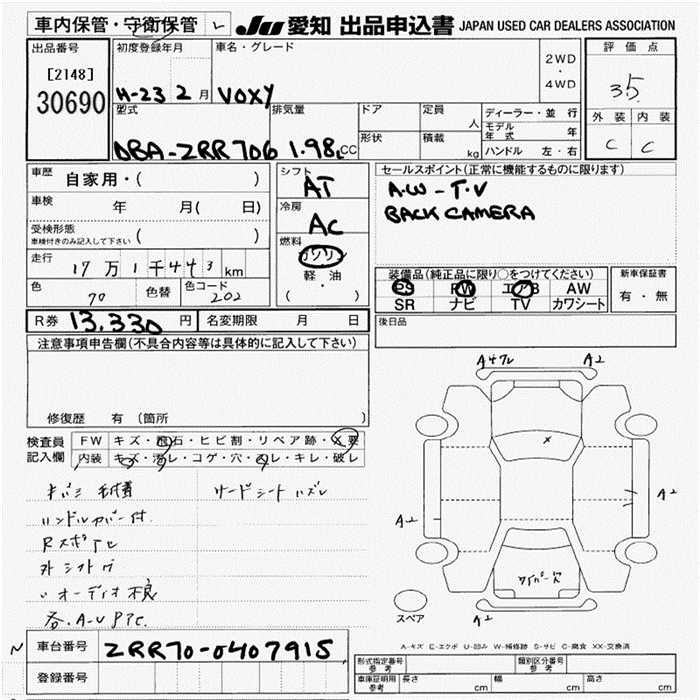 車内保管・守衛保管 レ
JU 愛知 出品申込書 JAPAN USED CAR DEALERS ASSOCIATION
出品番号
[2148]
30690
初度登録年月
H-23 2 月
車名・グレード
VOXY
2WD
・
4WD
評価点
3.5
外装 内装
C C
型式
DBA-ZRR70G
排気量
1.98L CC
ドア
形状
定員 人
積載 kg
ディーラー・並行
モデル年式 年
ハンドル 左・右
車歴 自家用・( )
車検 年 月( 日)
受検形態
車検付きのみ記入して下さい ( )
走行 17万1千443 km
色 70 色替
色コード 202
シフト
AT
冷房
AC
燃料
ガソリン
軽・油
( )
セールスポイント(正常に機能するものに限ります)
A.W - T.V
BACK CAMERA
装備品(純正品に限り○をつけてください)
PS PW エアB AW
SR ナビ TV カワシート
新車保証書
有・無
R券 13,330 円
名変期限 月 日
後日品
注意事項申告欄(不具合内容等は具体的に記入して下さい)
修復歴 有 (箇所 )
検査員
記入欄
FW キズ・飛石・ヒビ割・リペア跡・X要
内装 キズ・汚レ・コゲ・穴・スレ・キレ・破レ
サードシートハズレ
ハンドルカバー付
オーディオ不良
A2
A2
A2
A2
スペア
A-キズ E-エクボ U-凹み W-補修跡 S-サビ C-腐食 XX-交換済
N 車台番号 ZRR70-0407915
登録番号
形式指定番号
参考
類別区分番号
参考
車庫証明用
参考
長さ cm 幅 cm 高さ cm